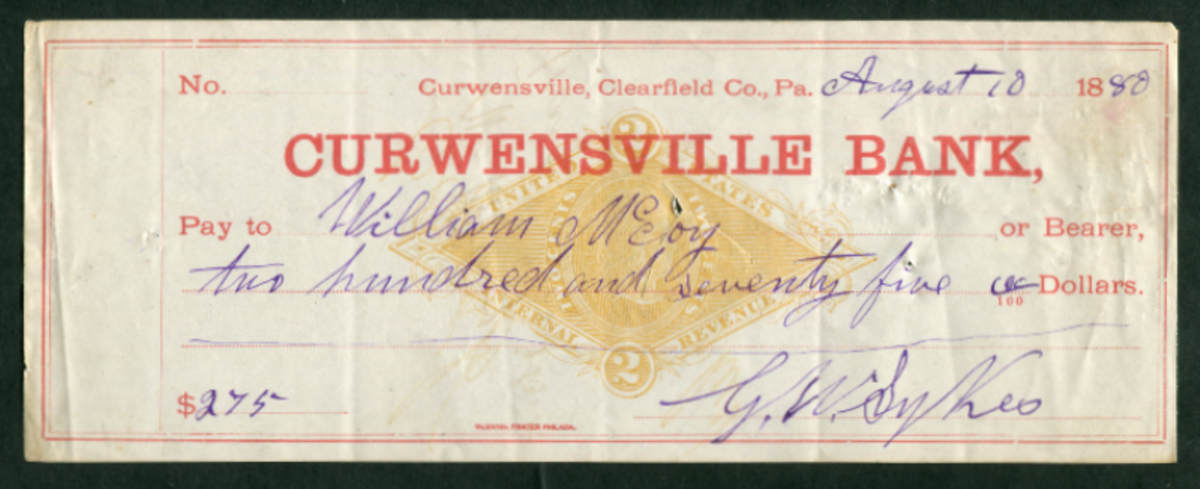 No. Curwensville, Clearfield Co., Pa. August 10 1880
2
CURWENSVILLE BANK,
UNITED STATES
Pay to William McCoy or Bearer,
two hundred and seventy five 00/100 Dollars.
INTERNAL REVENUE
2
$275
G. W. Sykes